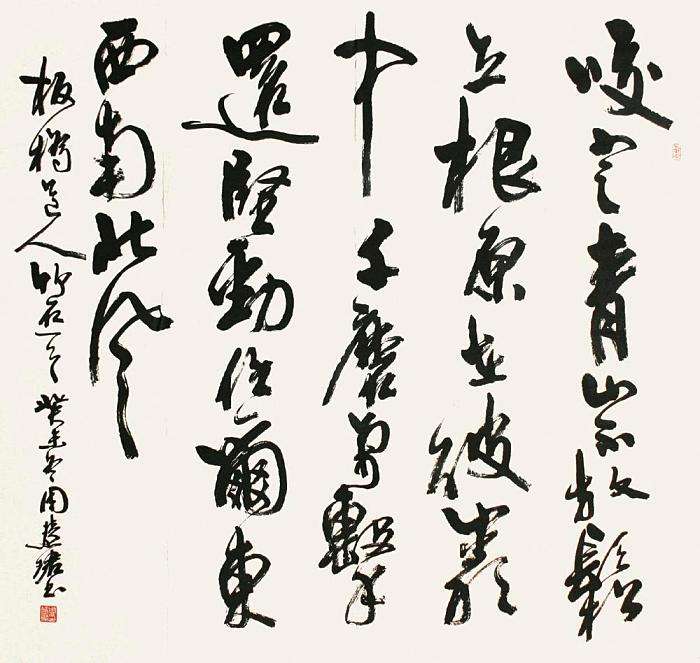 咬定青山不放鬆
立根原在破巖
中千磨萬擊
還堅勁任爾東
西南北風
板橋道人竹石一首癸未冬周慧珺書